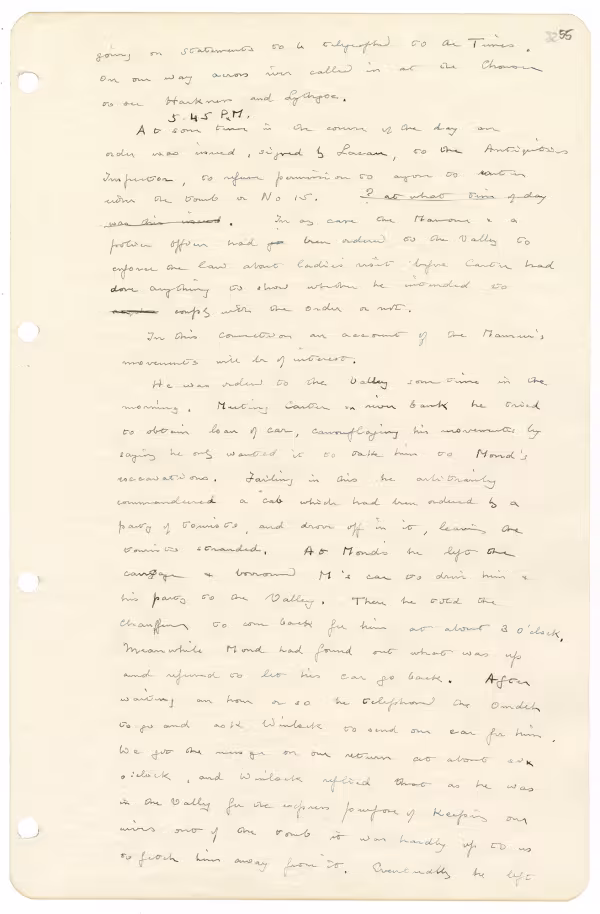 55
going on statements to be telegraphed to the Times.
On our way across river called in at the
to see Harkness and Lythgoe.
5.45 P.M.
At some time in the course of the day an
order was issued, signed by Lacau, to the Antiquities
Inspectors, to refuse permission to anyone to enter
either the tomb or No 15. ? at what time of day
was this issued. In any case the Mamour & a
police officer had been ordered to the Valley to
enforce the law about ladies visit before Carter had
done anything to show whether he intended to
comply with the order or not.
In this connection an account of the Mamur's
movements will be of interest.
He was ordered to the Valley some time in the
morning. Meeting Carter on river bank he tried
to obtain loan of car, camouflaging his movements by
saying he only wanted it to take him to Mond's
excavations. Failing in this he arbitrarily
commandeered a cab which had been ordered by a
party of tourists, and drove off in it, leaving the
tourists stranded. At Mond's he left the
carriage & borrowed M's car to drive him &
his party to the Valley. There he told the
chauffeur to come back for him at about 3 o'clock.
Meanwhile Mond had found out what was up
and refused to let his car go back. After
waiting an hour or so he telephoned the Omdeh
to go and ask Winlock to send our car for him.
We got the message on our return at about
o'clock, and Winlock replied that as he was
in the Valley for the express purpose of keeping our
wives out of the tomb it was hardly up to us
to fetch him away from it. Eventually he left